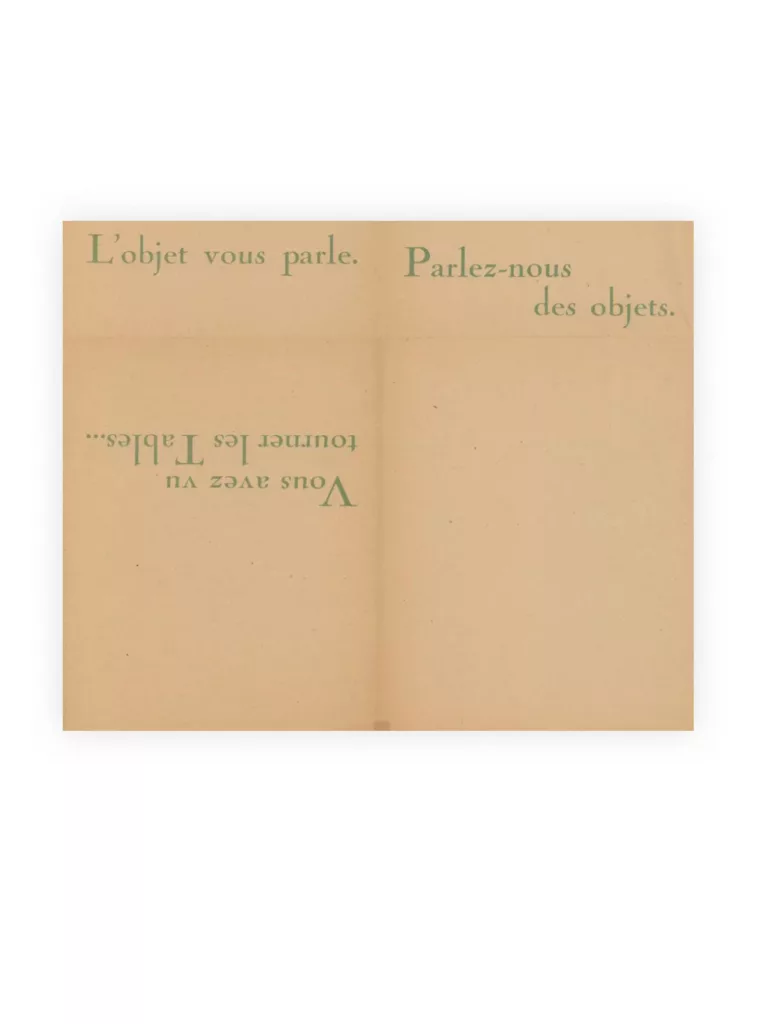 L'objet vous parle.
Parlez-nous
des objets.
Vous avez vu
tourner les Tables...